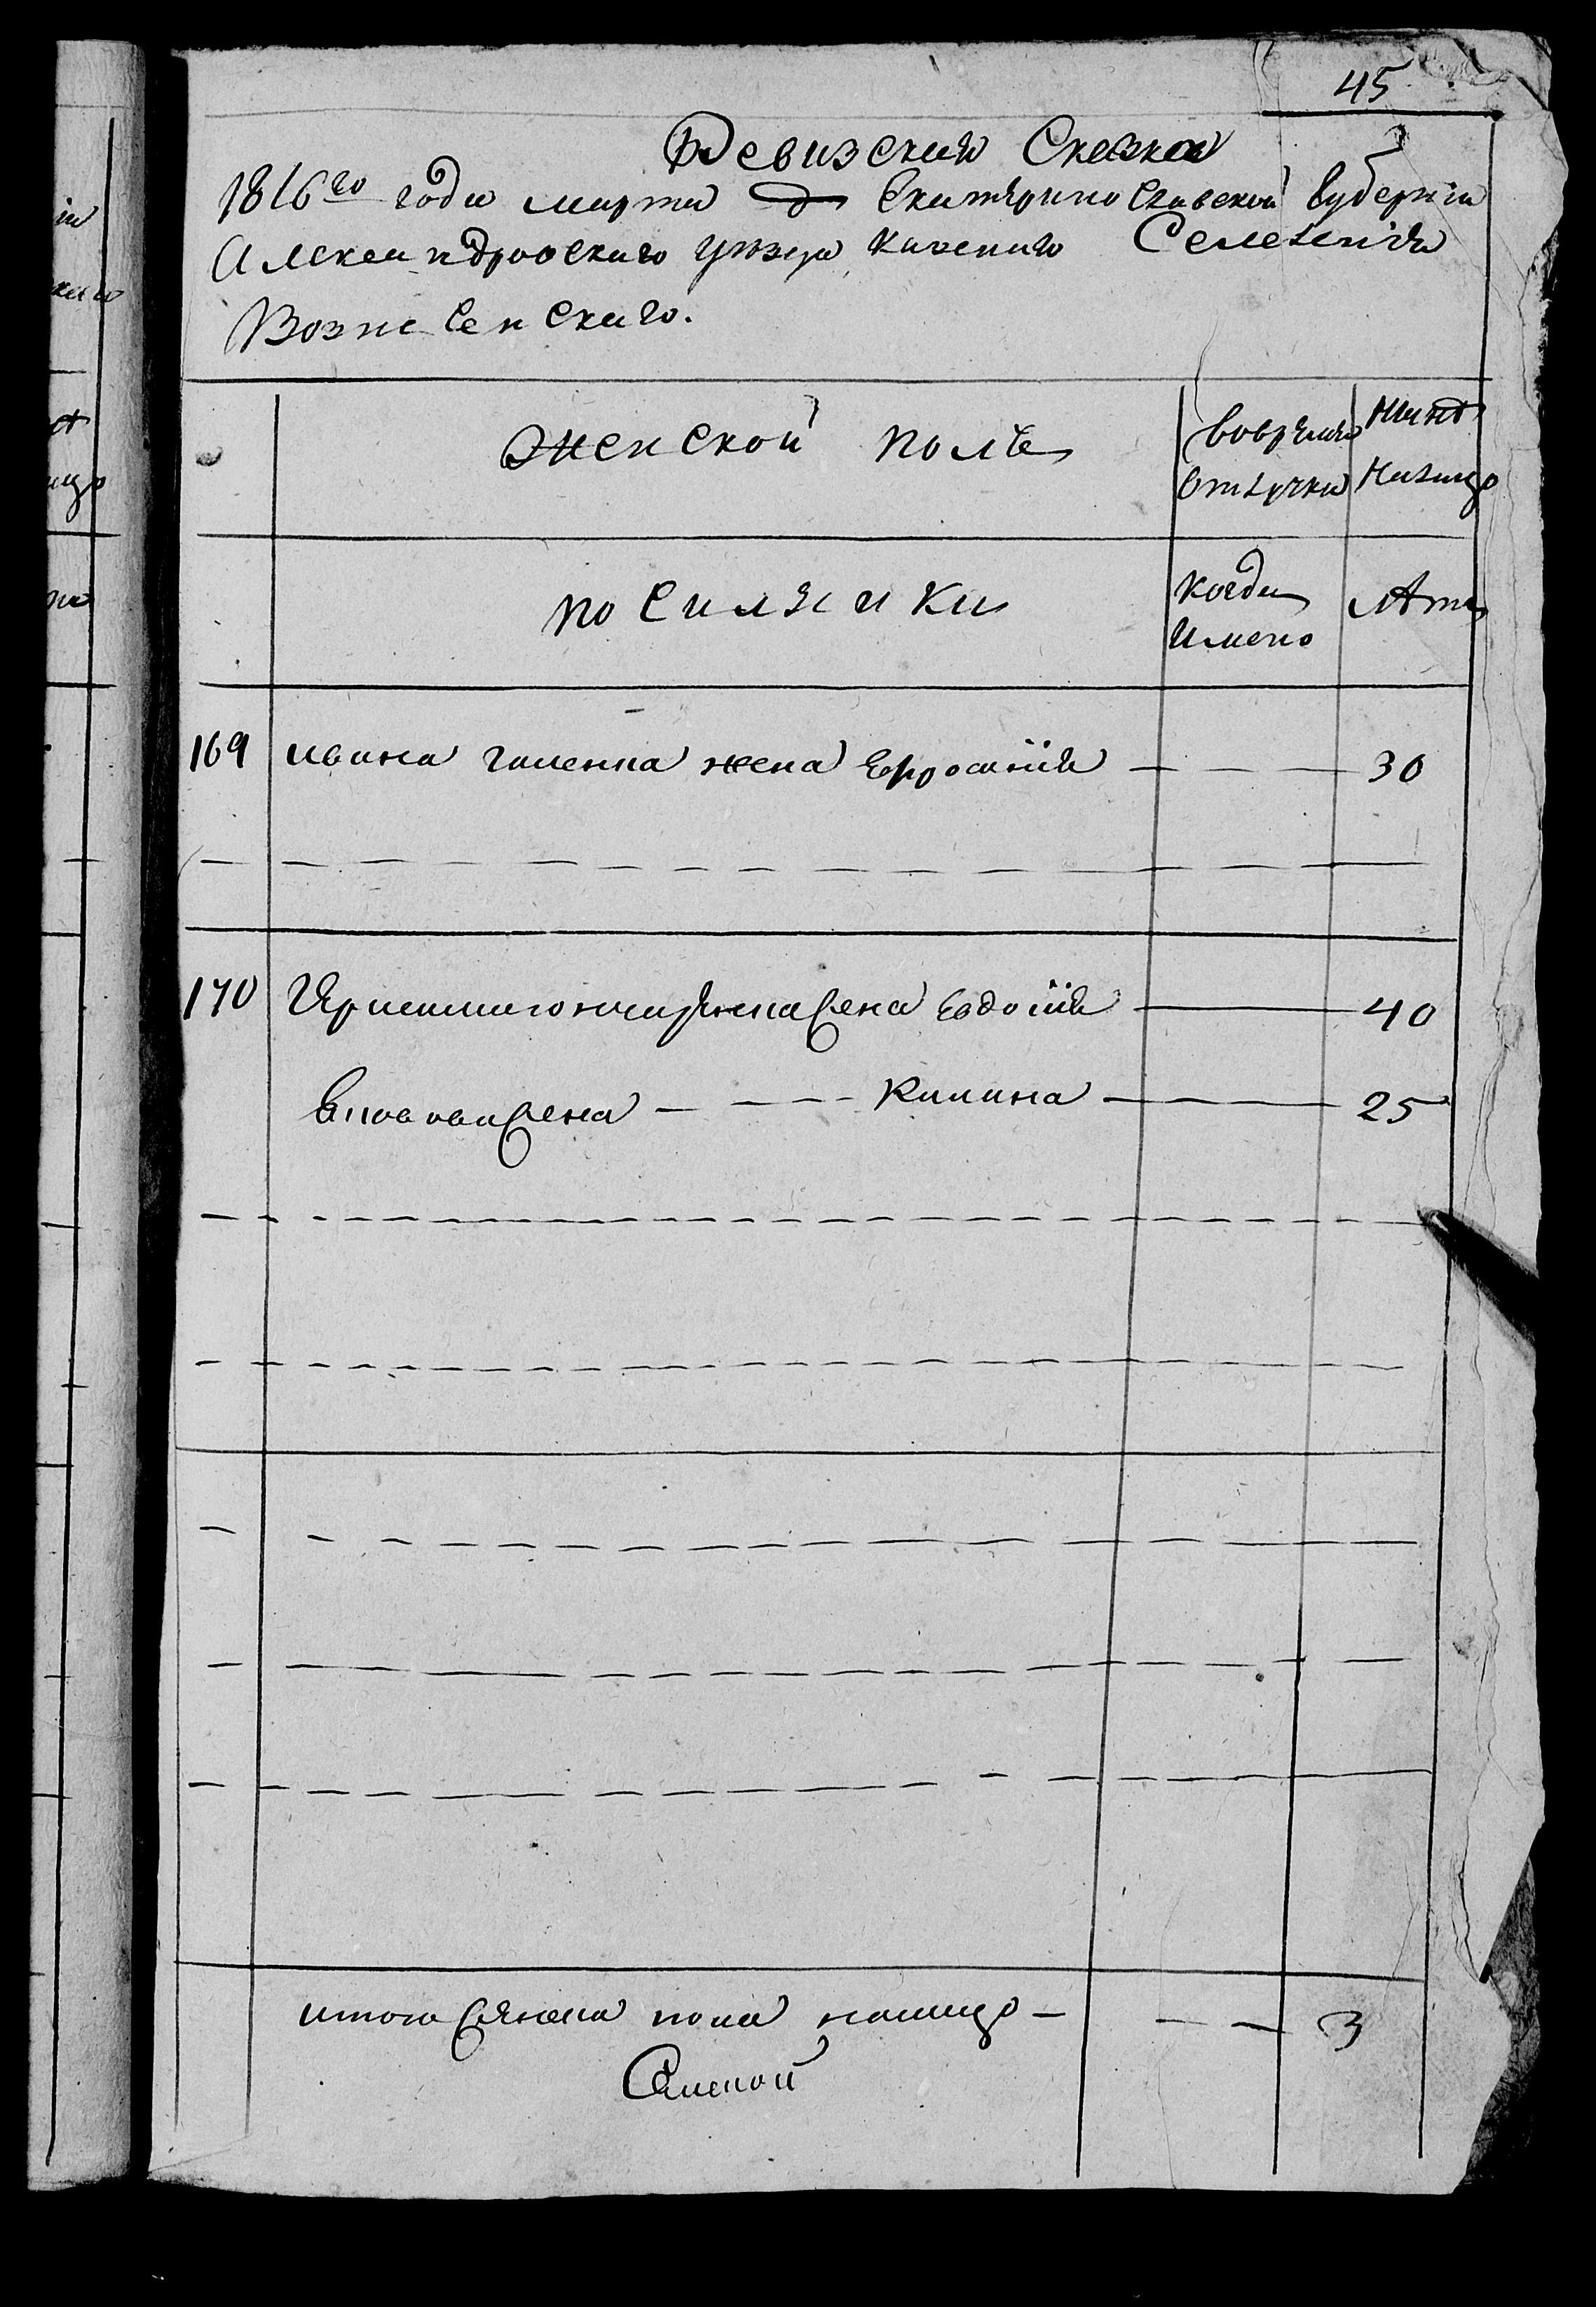 45
Ревизская Сказка
1816го года марта д Екатяринославской губернiи
Александровскаго уезда казеннаго Селенiя
Вознесенскаго.
женской полъ
вовремяно
отлучки
Нынѣ
Налицо
посиляники
Когда
Имено
лѣта
169 ивана галенка жена Ефросинiя — — — 30
170 жена Евдокiя — 40
жена — — — Килина — 25
итого женска пола налицо — — — 3